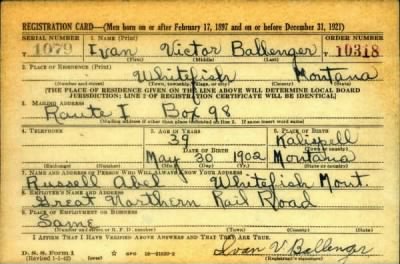 REGISTRATION CARD—(Men born on or after February 17, 1897 and on or before December 31, 1921)
SERIAL NUMBER 1. NAME (Print) ORDER NUMBER
T 1079 Ivan Victor Ballenger 10318
(First) (Middle) (Last)
2. PLACE OF RESIDENCE (Print)
Whitefish Montana
(Town, township, village, or city) (County) (State)
[THE PLACE OF RESIDENCE GIVEN ON THE LINE ABOVE WILL DETERMINE LOCAL BOARD
JURISDICTION; LINE 2 OF REGISTRATION CERTIFICATE WILL BE IDENTICAL]
3. MAILING ADDRESS
Route 1 Box 98
[Mailing address if other than place indicated on line 2. If same insert word same]
4. TELEPHONE 5. AGE IN YEARS 6. PLACE OF BIRTH
39 Kalispell
DATE OF BIRTH (Town or county)
May 30 1902 Montana
(Exchange) (Number) (Mo.) (Day) (Yr.) (State or country)
7. NAME AND ADDRESS OF PERSON WHO WILL ALWAYS KNOW YOUR ADDRESS
Russell Abel Whitefish Mont.
8. EMPLOYER'S NAME AND ADDRESS
Great Northern Rail Road
9. PLACE OF EMPLOYMENT OR BUSINESS
Same
(Number and street or R. F. D. number) (Town) (County) (State)
I AFFIRM THAT I HAVE VERIFIED ABOVE ANSWERS AND THAT THEY ARE TRUE.
D. S. S. Form 1
(Revised 1-1-42) GPO
Ivan V Ballenger